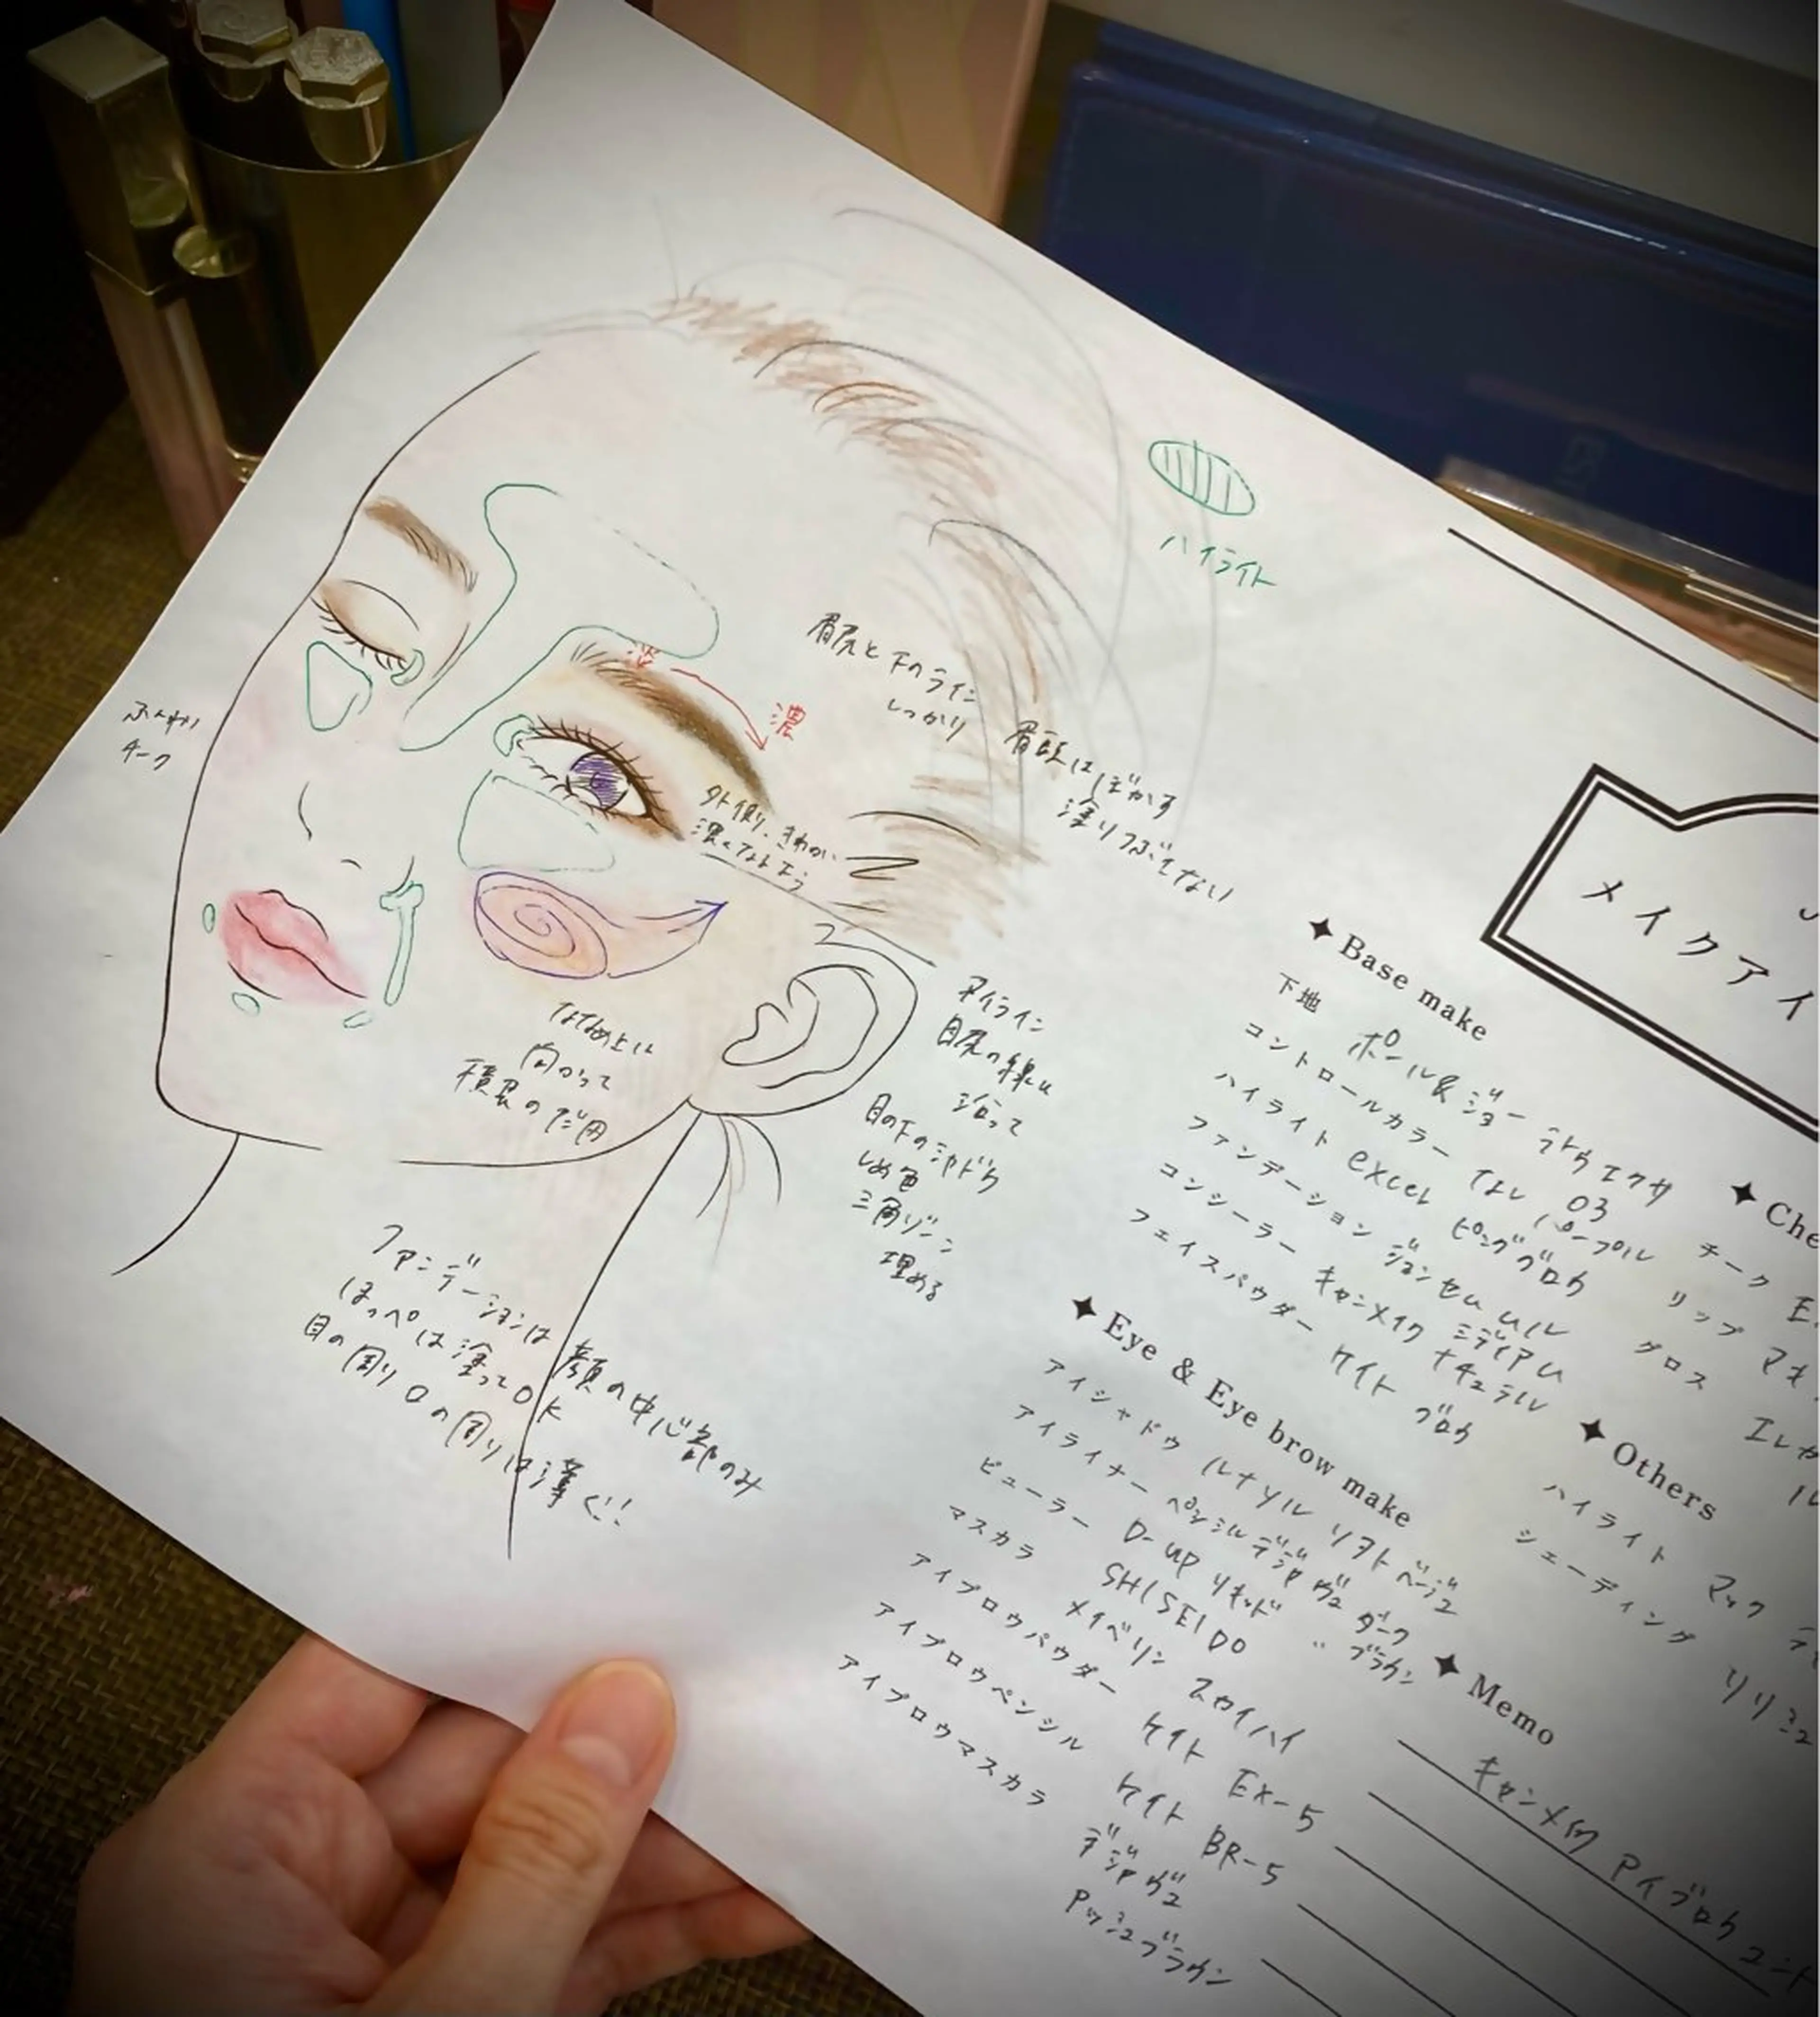 ハイライト
眉尻と下のライン
しっかり
淡
濃
眉頭はぼかす
塗りつぶさない
ふんわり
チーク
外側、きわが
濃くなるよう
ななめ上に
向かって
横長のだ円
アイライン
目尻の線に
沿って
目の下のシャドウ
しめ色
三角ゾーン
埋める
ファンデーションは顔の中心部のみ
ほっぺは塗ってOK
目の周り口の周りは薄く!!
メイクアイ
Base make
下地 ポール&ジョー ラトゥエクサ
コントロールカラー なし 03
ハイライト excel パープル
ファンデーション ジョンセムムル
コンシーラー キャンメイク ミディアム ナチュラル
フェイスパウダー ケイト
Eye & Eye brow make
アイシャドウ ルナソル ソフトベージュ
アイライナー ペンシル デジャヴュ ダーク
D-up リキッド 〃 ブラウン
ビューラー SHISEIDO
マスカラ メイベリン スカイハイ
アイブロウパウダー ケイト EX-5
アイブロウペンシル ケイト BR-5
アイブロウマスカラ デジャヴュ
アッシュブラウン
Che
チーク E.
リップ マキ
グロス エレガ
Others
ハイライト マック
シェーディング リリミュ
Memo
キャンメイク アイブロウ